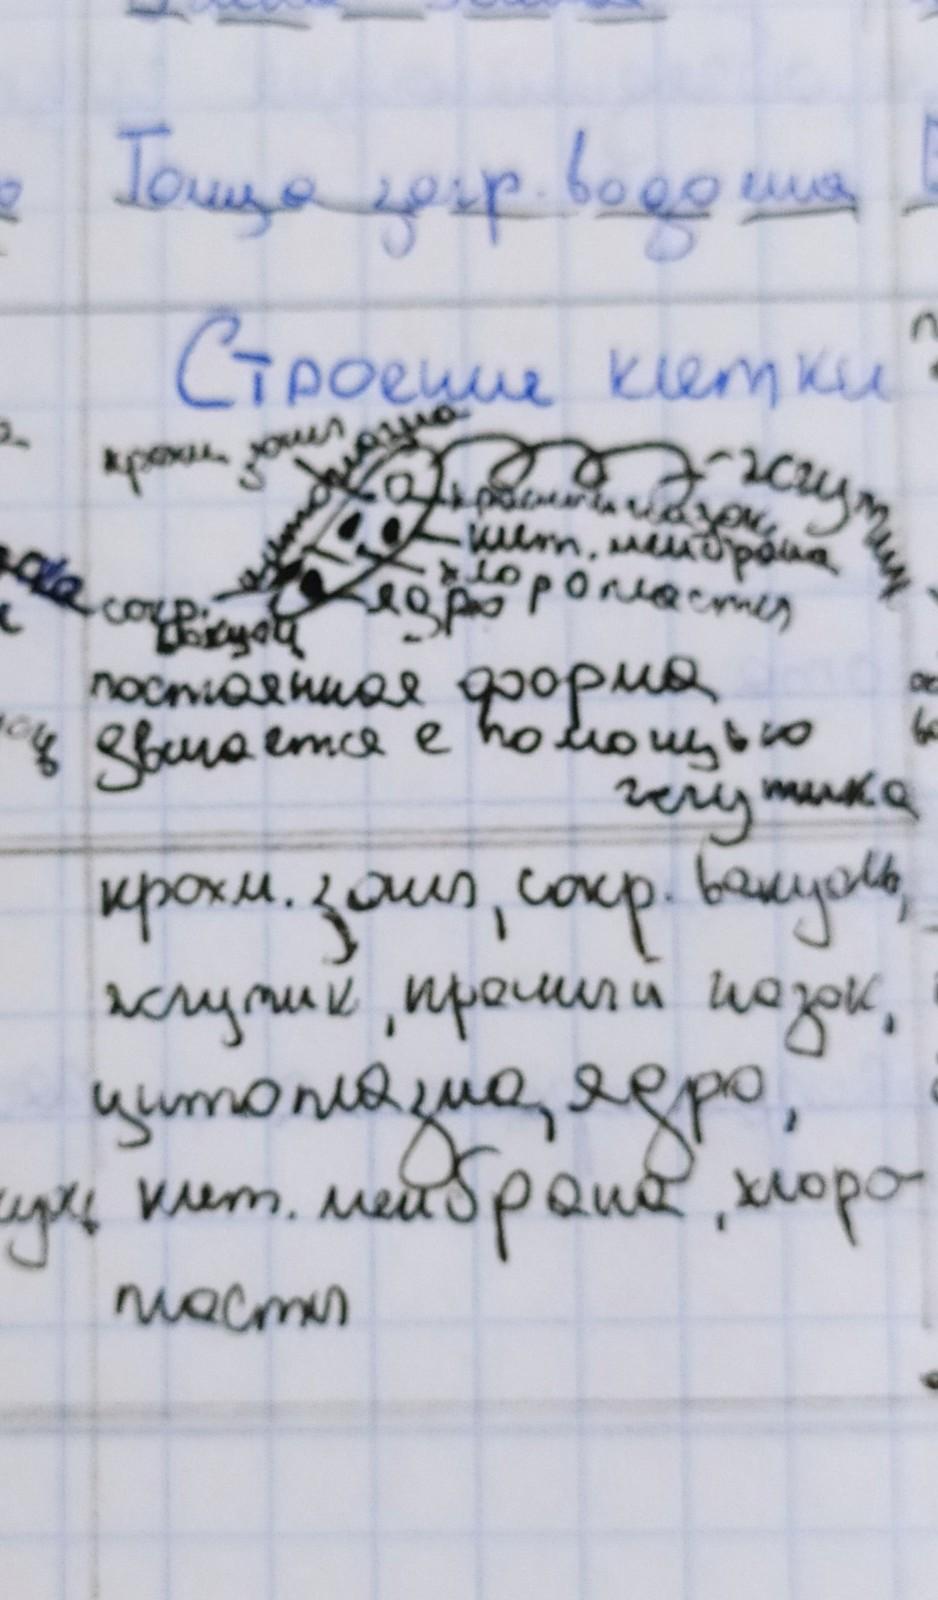 Толща загр. водоёма
Строение клетки
крахм. зёрн
цитоплазма
жгутик
красный глазок
клет. мембрана
хлоропласты
ядро
сокр.
вакуол
постоянная форма
двигается с помощью
жгутика
крахм. зёрн, сокр. вакуоль,
жгутик, красный глазок,
цитоплазма, ядро,
клет. мембрана, хлоро-
пласты